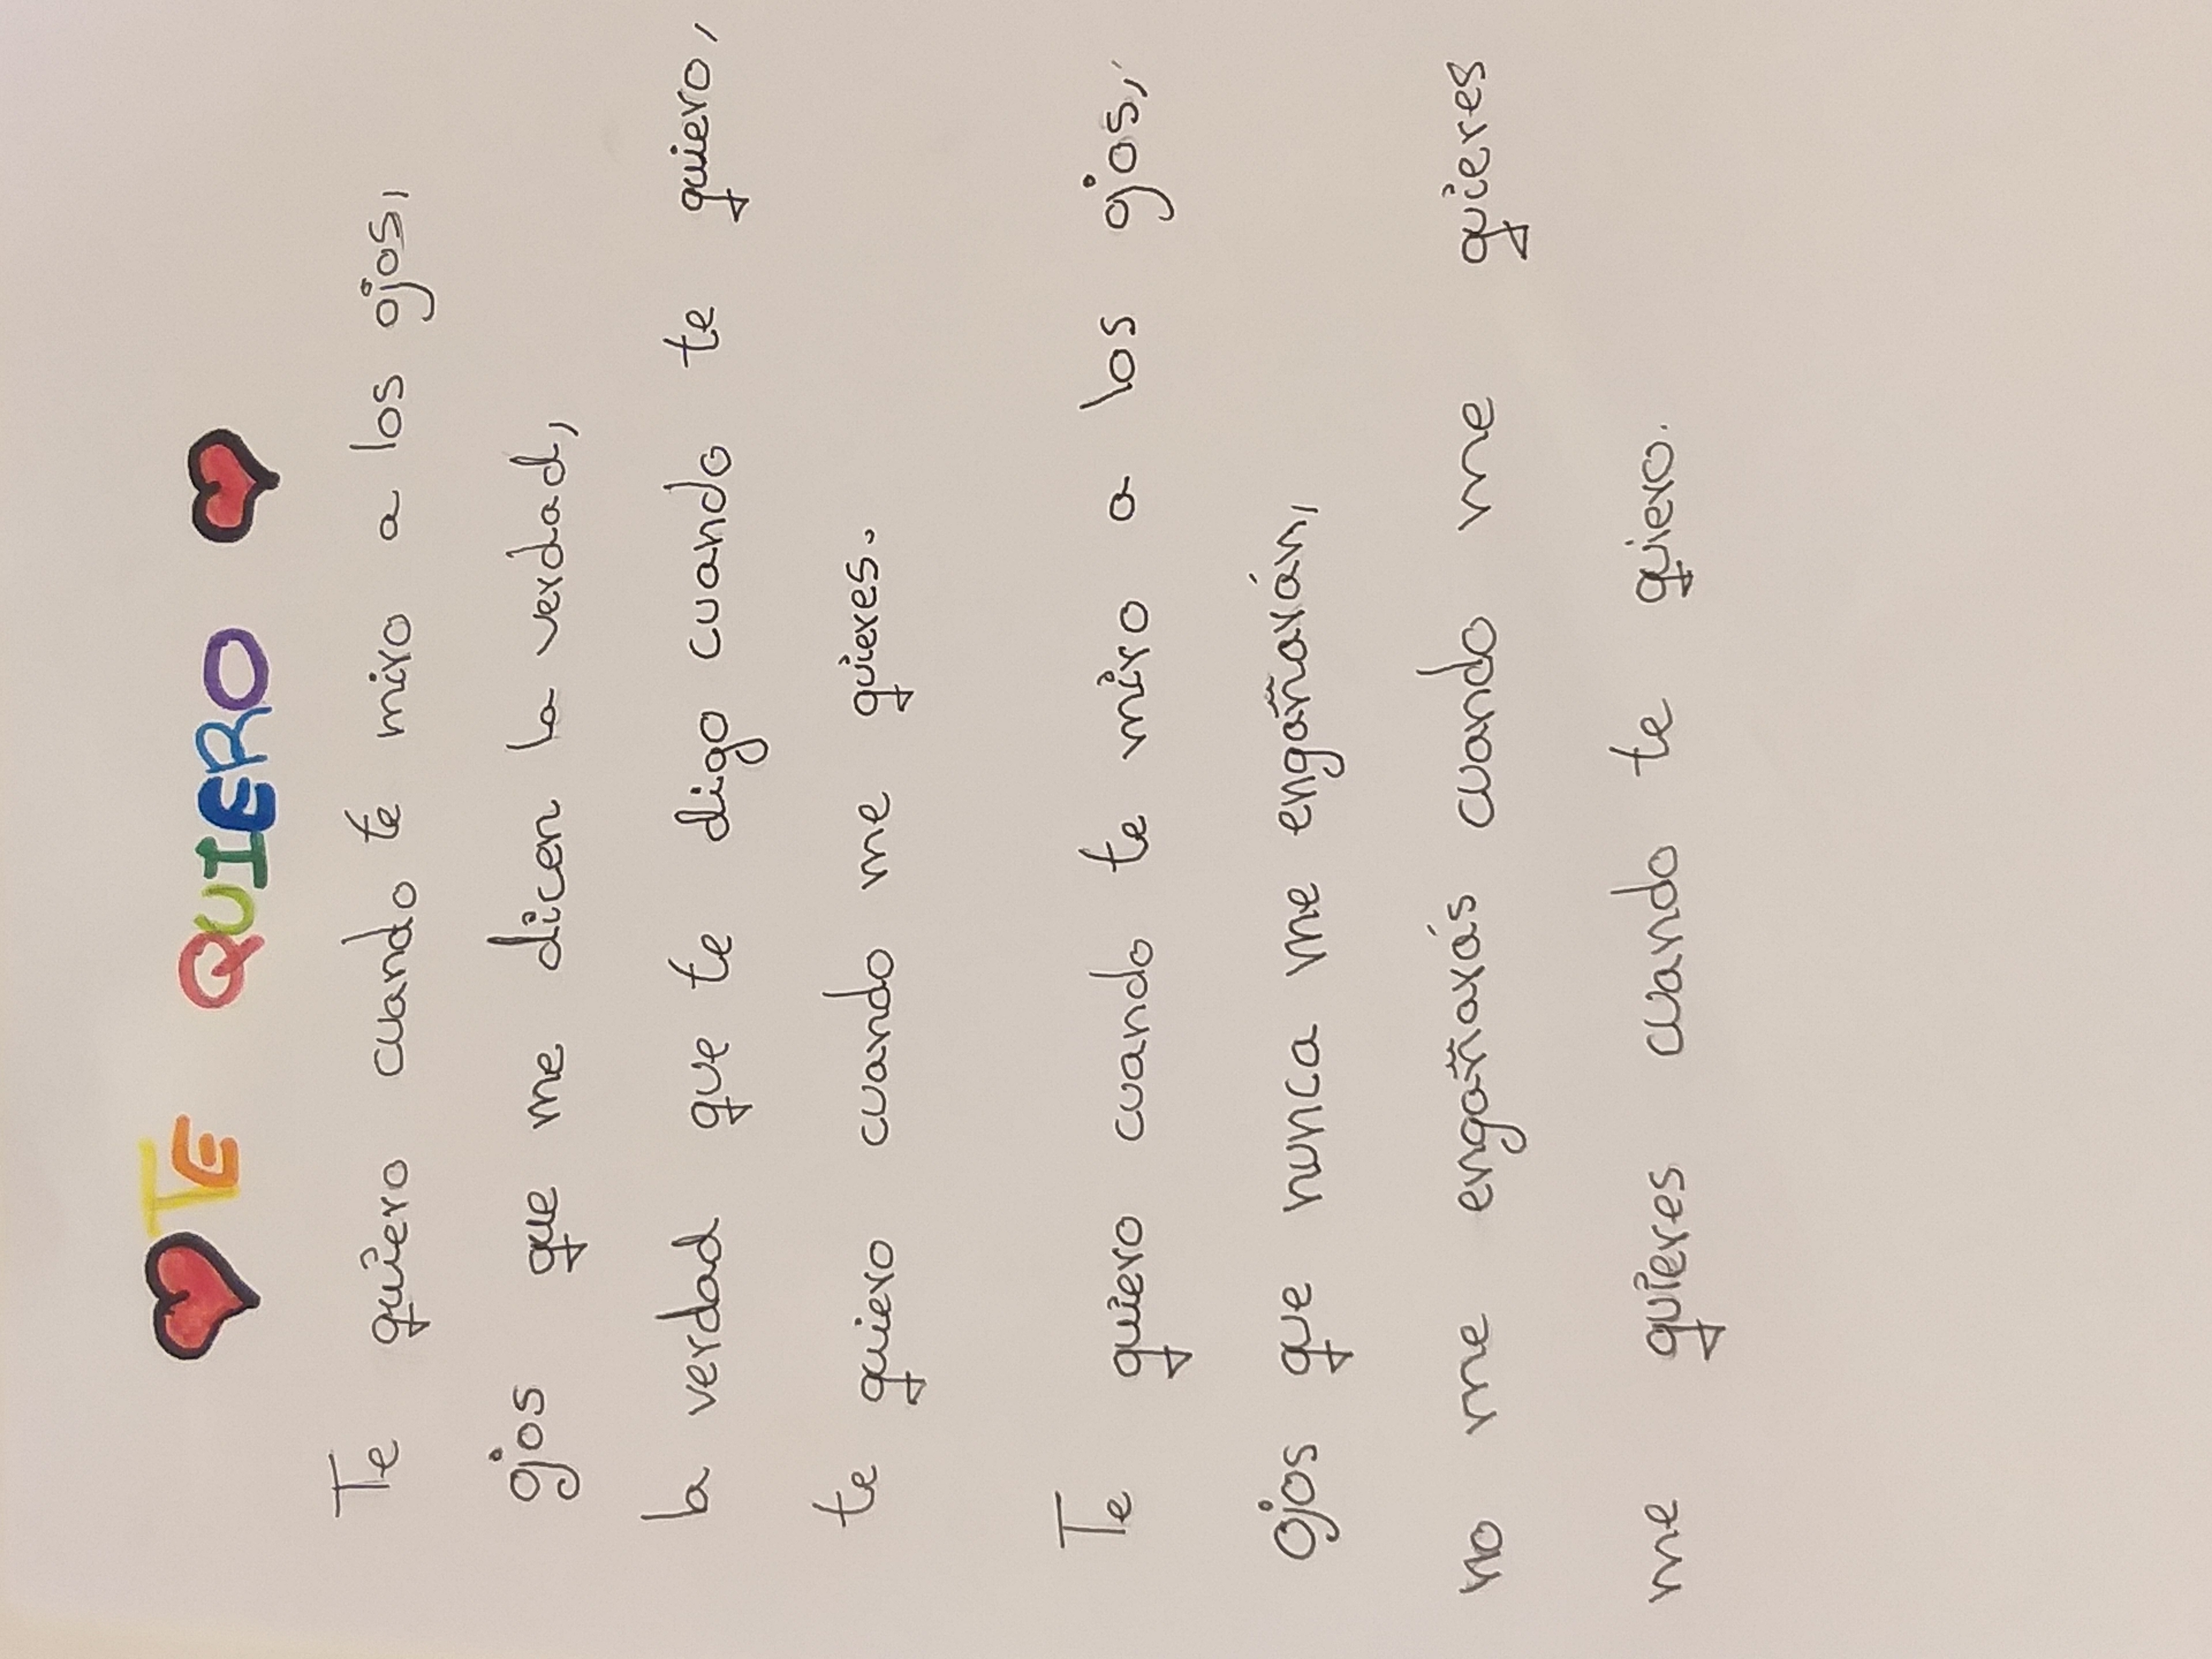 TE QUIERO
Te quiero cuando te miro a los ojos,
ojos que me dicen la verdad,
la verdad que te digo cuando te quiero,
te quiero cuando me quieres.
Te quiero cuando te miro a los ojos,
Ojos que nunca me engañarán,
no me engañarás cuando me quieres
me quieres cuando te quiero.